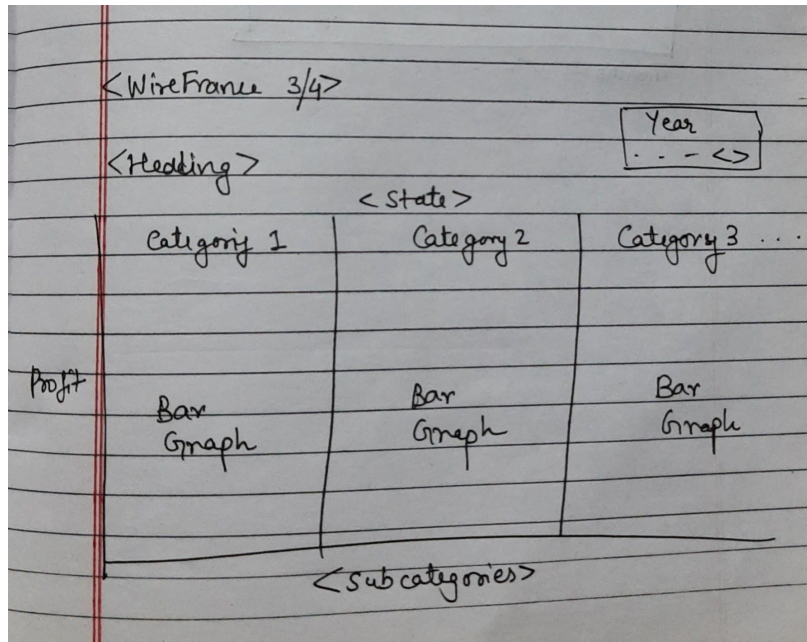 <WireFrame 3/4>
Year
. . - <>
<Hedding>
<State>
Category 1
Category 2
Category 3 ....
Profit
Bar
Graph
Bar
Graph
Bar
Graph
<Subcategories>